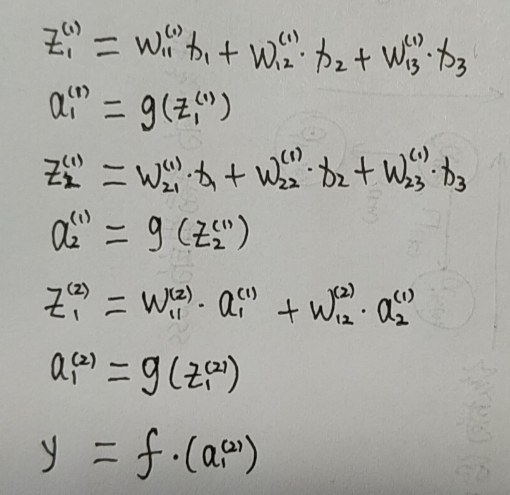 z₁⁽¹⁾ = w₁₁⁽¹⁾ x₁ + w₁₂⁽¹⁾ · x₂ + w₁₃⁽¹⁾ · x₃
a₁⁽¹⁾ = g(z₁⁽¹⁾)
z₂⁽¹⁾ = w₂₁⁽¹⁾ · x₁ + w₂₂⁽¹⁾ · x₂ + w₂₃⁽¹⁾ · x₃
a₂⁽¹⁾ = g(z₂⁽¹⁾)
z₁⁽²⁾ = w₁₁⁽²⁾ · a₁⁽¹⁾ + w₁₂⁽²⁾ · a₂⁽¹⁾
a₁⁽²⁾ = g(z₁⁽²⁾)
y = f · (a₁⁽²⁾)